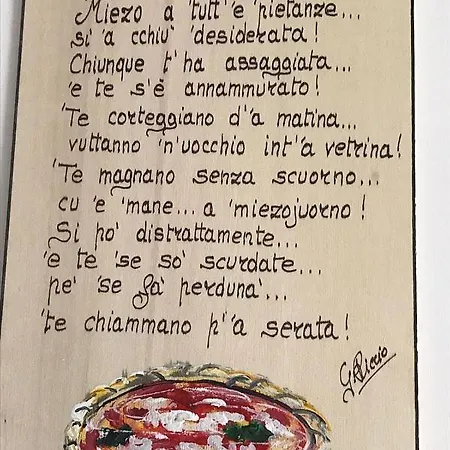 Miezo a 'tutt' 'e 'pietanze...
si 'a cchiu' 'desiderata!
Chiunque t'ha assaggiata...
'e te s'è annammurato!
'Te corteggiano d''a matina...
vuttanno 'n'uocchio int''a vetrina!
'Te magnano senza scuorno...
cu 'e 'mane... a 'miezojuorno!
Si po' distrattamente...
'e te 'se so' scurdate...
pe' 'se fa' perduna'...
'te chiammano p''a serata!